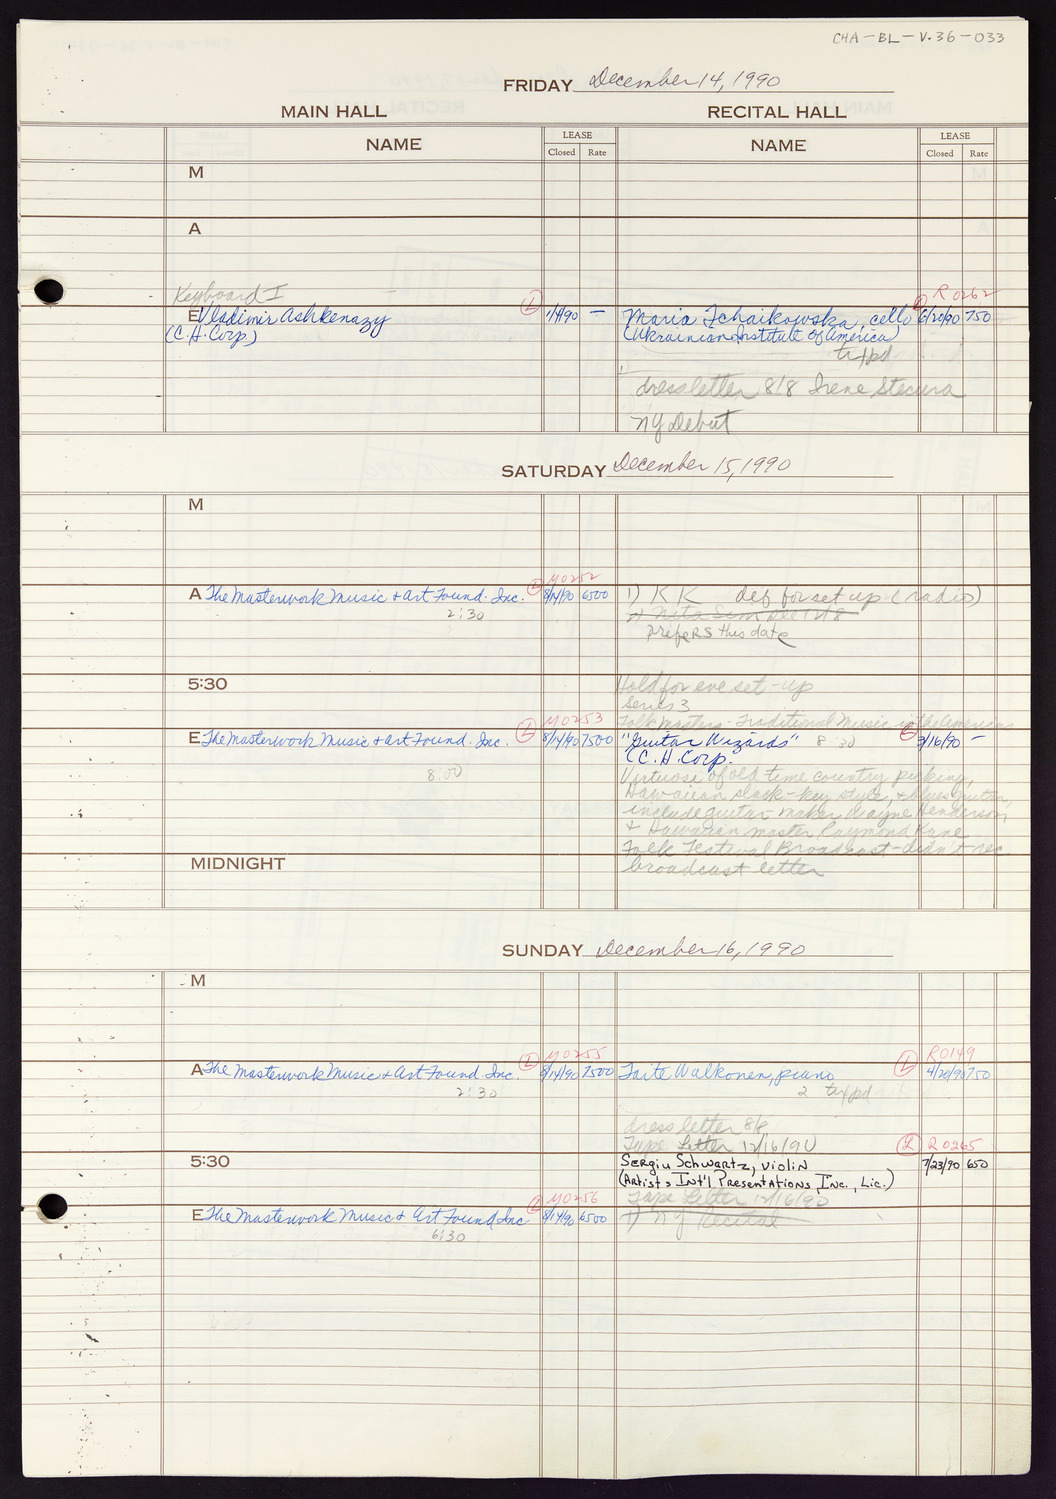 CHA-BL-V.36-033
FRIDAY December 14, 1990
MAIN HALL RECITAL HALL
NAME LEASE Closed Rate NAME LEASE Closed Rate
M
A
Keyboard I
R0262
E Vladimir Ashkenazy L 1/1/90 — Maria Tchaikowska, cello L 6/20/90 750
(C.H. Corp.) (Ukrainian Institute of America)
tx/pd
dress letter 8/8 Irene Stecura
NY Debut
SATURDAY December 15, 1990
M
M0252
A The Masterwork Music & Art Found. Inc. L 8/14/90 6500 1) KK def for set up (radio)
2:30
prefers this date
5:30 Hold for eve set-up
Series 3
M0253 Folk Masters - Traditional Music in the Americas
E The Masterwork Music & Art Found. Inc. L 8/14/90 7500 "Guitar Wizards" 8:30 3/16/90 —
(C.H. Corp.
8:00
Virtuosi of old time country picking,
Hawaiian slack-key style, & blues guitar,
include guitar maker Wayne Henderson,
& Hawaiian master Raymond Kane
Folk Festival Broadcast - didn't rec
MIDNIGHT broadcast letter
SUNDAY December 16, 1990
M
M0255 R0149
A The Masterwork Music & Art Found Inc. L 8/14/90 7500 Taite Walkonen, piano L 4/20/90 750
2:30 2 tx/pd
dress letter 8/8
Tape Letter 12/16/90 L R0265
5:30 Sergiu Schwartz, violin 7/23/90 650
(Artists Int'l Presentations, Inc., Lic.)
M0256 Tape Letter 12/16/90
E The Masterwork Music & Art Found Inc L 8/14/90 6500 1) NY Recital
6:30